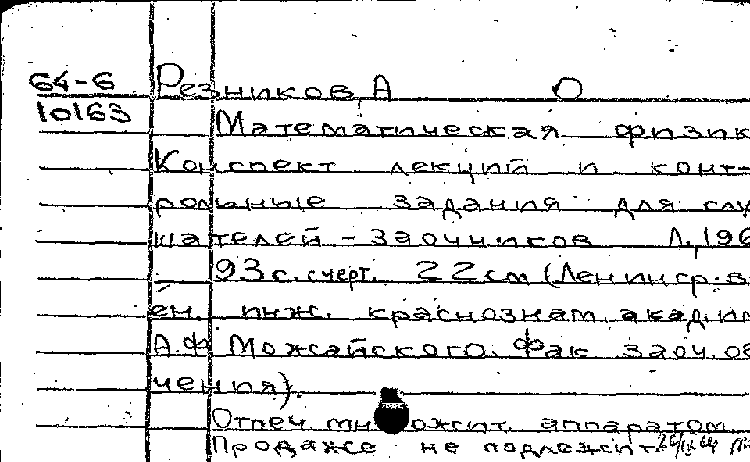 64-6 Резников, А О
10163
Математическая физик
Конспект лекций и конт-
рольные задания для слу
шателей-заочников Л., 196
93 с. с черт. 22 см (Ленингр. в
ен. инж. краснознам. акад. им
А.Ф Можайского. Фак заоч. об
чения).
Отпеч множит. аппаратом
Продаже не подлежит